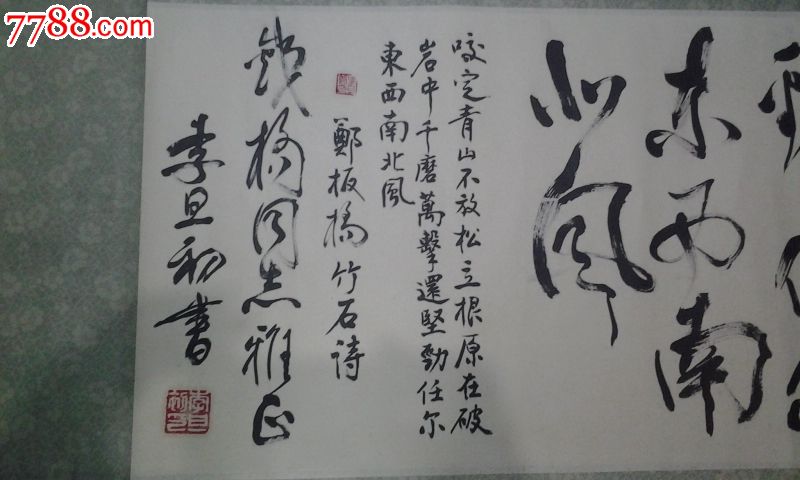 7788.com
东西南
北風
咬定青山不放松立根原在破
岩中千磨萬擊還堅勁任尔
東西南北風
鄭板橋竹石詩
橋同志雅正
李旦初書
李旦初印